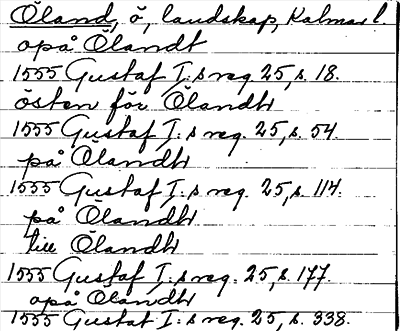 Öland, ö, landskap, Kalmar l.
opå Ölandt
1555 Gustaf I:s reg. 25, s. 18.
östen för Ölandh
1555 Gustaf I:s reg. 25, s. 54
på Ölandh
1555 Gustaf I:s reg. 25, s. 114.
på Ölandh
till Ölandh
1555 Gustaf I:s reg. 25, s. 177.
opå Ölandh
1555 Gustaf I:s reg. 25, s. 338.